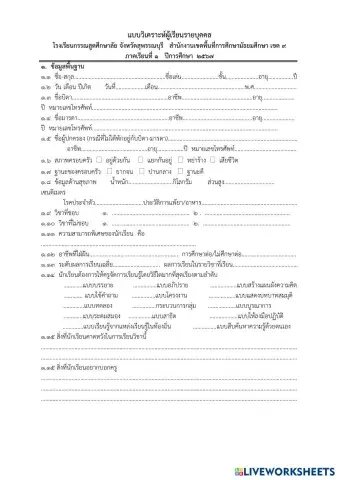 แบบวิเคราะห์ผู้เรียนรายบุคคล
โรงเรียนกรรณสูตศึกษาลัย จังหวัดสุพรรณบุรี สำนักงานเขตพื้นที่การศึกษามัธยมศึกษา เขต ๙
ภาคเรียนที่ ๑ ปีการศึกษา ๒๕๖๗
๑. ข้อมูลพื้นฐาน
๑.๑ ชื่อ-สกุล..............................ชื่อเล่น...............ชั้น...............อายุ............ปี
๑.๒ วัน เดือน ปีเกิด วันที่...............เดือน..............................พ.ศ................
๑.๓ ชื่อบิดา..............................อาชีพ..............................อายุ...............
ปี หมายเลขโทรศัพท์..............................
๑.๔ ชื่อมารดา..............................อาชีพ..............................อายุ...............
ปี หมายเลขโทรศัพท์..............................
๑.๕ ชื่อผู้ปกครอง (กรณีที่ไม่ได้พักอยู่กับบิดา-มารดา)..............................
อาชีพ...............อายุ...............ปี หมายเลขโทรศัพท์...............
๑.๖ สภาพครอบครัว □ อยู่ด้วยกัน □ แยกกันอยู่ □ หย่าร้าง □ เสียชีวิต
๑.๗ ฐานะของครอบครัว □ ยากจน □ ปานกลาง □ ฐานะดี
๑.๘ ข้อมูลด้านสุขภาพ น้ำหนัก...............กิโลกรัม ส่วนสูง...............
เซนติเมตร
โรคประจำตัว...............ประวัติการแพ้ยา/อาหาร...............
๑.๙ วิชาที่ชอบ ๑. .............................. ๒ . ..............................
๑.๑๐ วิชาที่ไม่ชอบ ๑. .............................. ๒. ..............................
๑.๑๑ ความสามารถพิเศษของนักเรียน คือ
..............................
๑.๑๒ อาชีพที่ใฝ่ฝัน.............................. การศึกษาต่อ/ไม่ศึกษาต่อ...............
๑.๑๓ ระดับผลการเรียนเฉลี่ย............... ผลการเรียนในรายวิชาที่เรียน...............
๑.๑๔ นักเรียนต้องการให้ครูจัดการเรียนรู้โดยวิธีใดมากที่สุดเรียงตามลำดับ
..........แบบบรรยาย ..........แบบอภิปราย ..........แบบสร้างแผนผังความคิด
.......... แบบใช้คำถาม ..........แบบโครงงาน ..........แบบแสดงบทบาทสมมุติ
..........แบบทดลอง .......... กระบวนการกลุ่ม ..........แบบบูรณาการ
..........แบบระดมสมอง ..........แบบสาธิต ..........แบบให้ลงมือปฏิบัติ
..........แบบเรียนรู้จากแหล่งเรียนรู้ในท้องถิ่น ..........แบบสืบค้นหาความรู้ด้วยตนเอง
๑.๑๕ สิ่งที่นักเรียนคาดหวังในการเรียนวิชานี้
..............................
..............................
๑.๑๕ สิ่งที่นักเรียนอยากบอกครู
..............................
..............................
..............................
LIVEWORKSHEETS